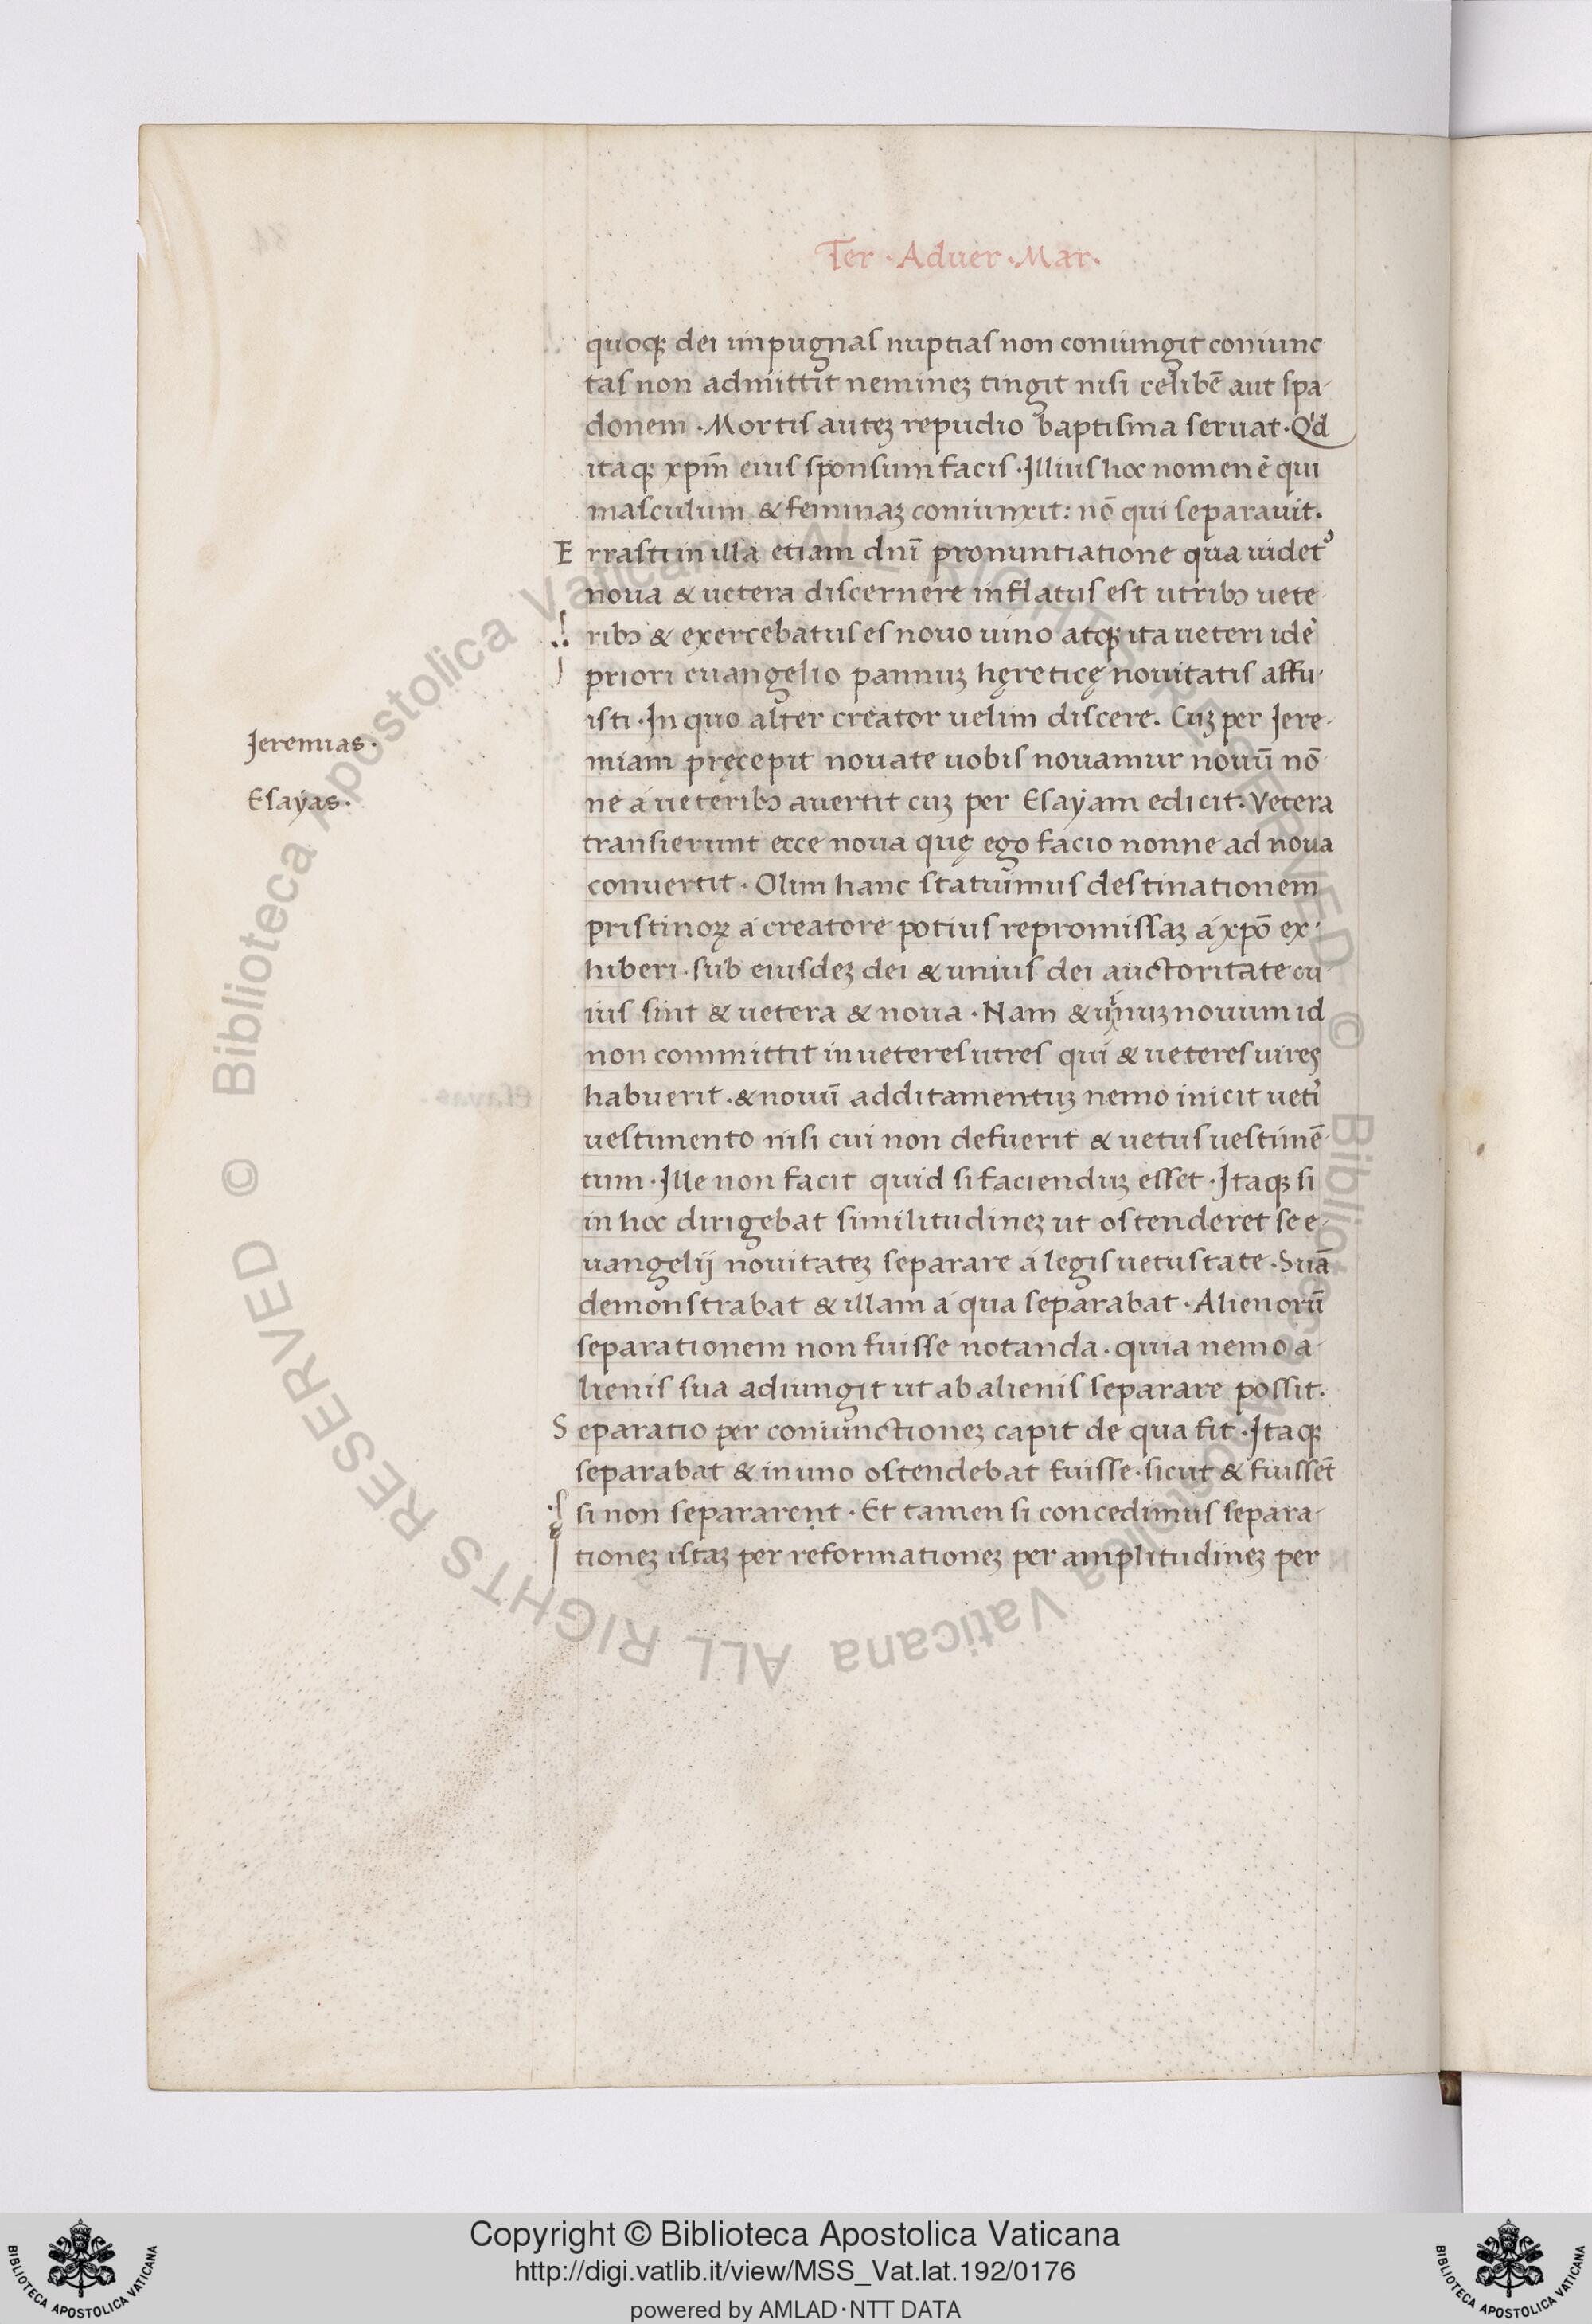 Ter · Aduer · Mar ·
quoqꝫ dei impugnas nuptias non coniungit coniunc
tas non admittit nemineꝫ tingit nisi celibē aut spa-
donem · Mortis auteꝫ repudio baptisma seruat · Qd
itaqꝫ xp̄m eius sponsum facis · Illius hoc nomen ē qui
masculum & feminaꝫ coniunxit: nō qui separauit.
Errasti in illa etiam dnī pronuntiatione qua uidet᾿
noua & uetera discernere inflatus est utribꝫ uete
ribꝫ & exercebatus es nouo uino atqꝫ ita ueteri idē
priori euangelio pannuꝫ hęreticę nouitatis assu-
isti · In quo alter creator uelim discere. Cuꝫ per Jere-
Jeremias ·
miam pręcepit nouate uobis nouamur nouū nō
Esayas ·
ne á ueteribꝫ auertit cuꝫ per Esaÿam edicit · Vetera
transierunt ecce noua quę ego facio nonne ad noua
conuertit · Olim hanc statuimus destinationem
pristinoꝝ á creatore potius repromissaꝫ á xpō ex-
hiberi · sub eiusdeꝫ dei & unius dei auctoritate cu
ius sint & uetera & noua · Nam & uinuꝫ nouum id
non committit in ueteres utres qui & ueteres uires
habuerit · & nouū additamentuꝫ nemo inicit ueti
uestimento nisi cui non defuerit & uetus uestimē-
tum · Ille non facit quid si facienduꝫ esset · Itaqꝫ si
in hoc dirigebat similitudineꝫ ut ostenderet se e-
uangelij nouitateꝫ separare á legis uetustate · Suā
demonstrabat & illam á qua separabat · Alienorū
separationem non fuisse notanda · quia nemo a-
lienis sua adiungit ut ab alienis separare possit.
Separatio per coniunctioneꝫ capit de qua fit · Itaqꝫ
separabat & in uno ostendebat fuisse · sicut & fuisset
si non separarent · Et tamen si concedimus separa-
tioneꝫ istaꝫ per reformationeꝫ per amplitudineꝫ per
© Biblioteca Apostolica Vaticana ALL RIGHTS RESERVED © Biblioteca Apostolica Vaticana ALL RIGHTS RESERVED
Copyright © Biblioteca Apostolica Vaticana
http://digi.vatlib.it/view/MSS_Vat.lat.192/0176
powered by AMLAD·NTT DATA
BIBLIOTECA APOSTOLICA VATICANA
BIBLIOTECA APOSTOLICA VATICANA